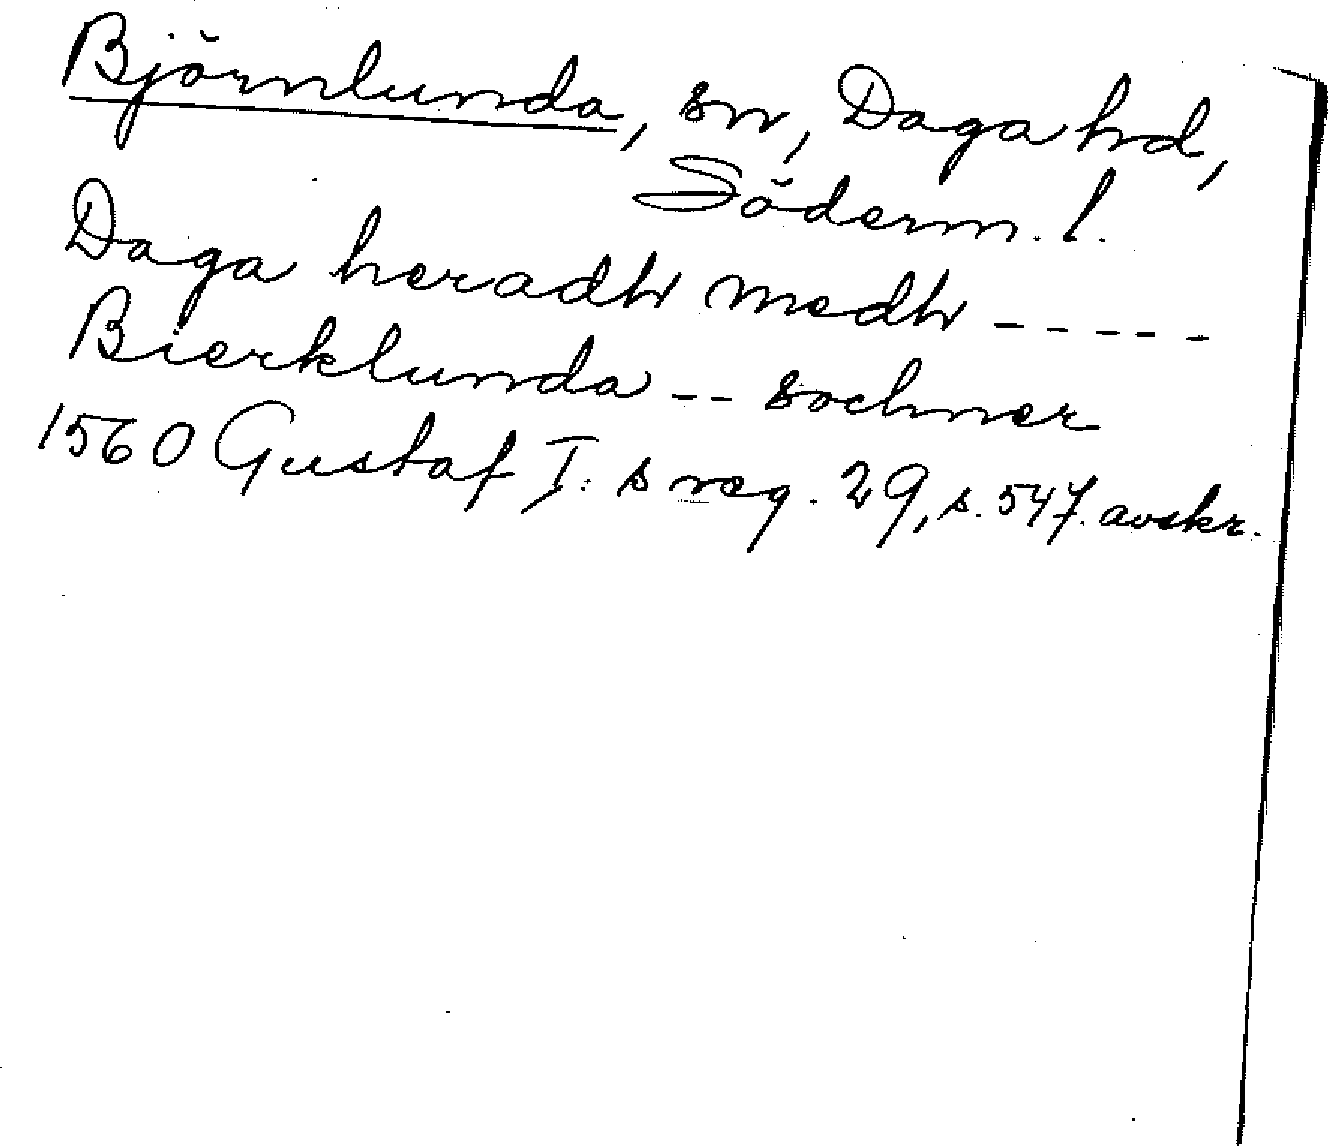 Björnlunda, sn, Daga hd,
Söderm. l.
Daga heradh medh -----
Bierklunda -- sochner
1560 Gustaf I: s reg. 29, s. 547. avskr.